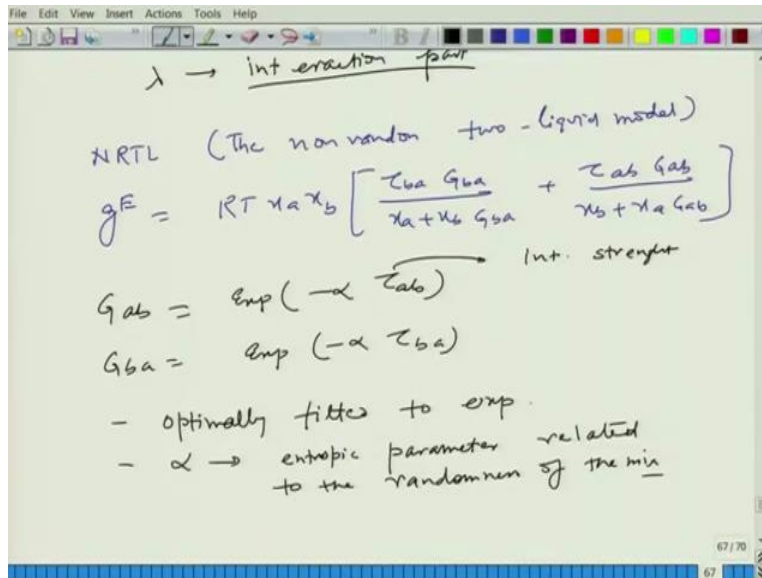 File Edit View Insert Actions Tools Help
λ → interaction part
NRTL (The non random two-liquid model)
g^E = RT xa xb [ τba Gba / (xa + xb Gba) + τab Gab / (xb + xa Gab) ]
Gab = Exp(-α τab) → Int. strenght
Gba = Exp (-α τba)
- optimally fitted to exp.
- α → entropic parameter related
to the randomness of the mix
67/70
67